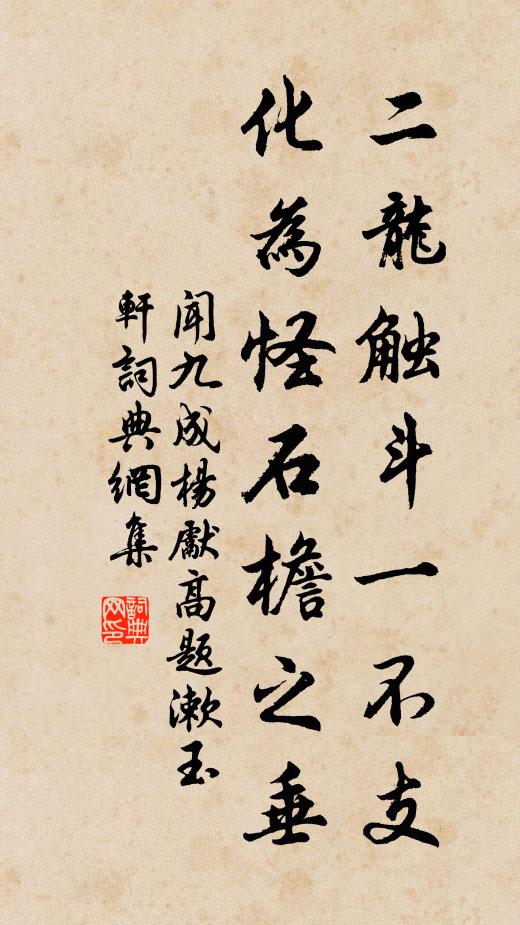 二龍触斗一不支
化為怪石檐之垂
聞九成楊獻高題漱玉
軒詞典網集
詞典
网印